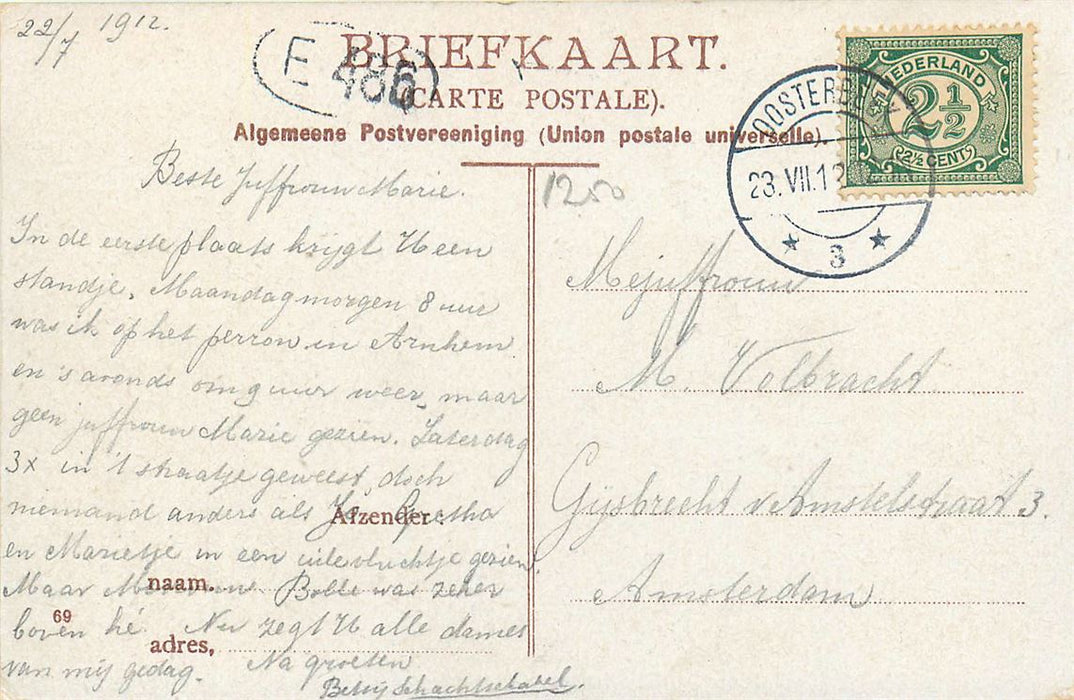 22/7 1912.
E 486
BRIEFKAART.
(CARTE POSTALE).
Algemeene Postvereeniging (Union postale universelle).
NEDERLAND
2 1/2
2½ CENT
OOSTERBEEK
23.VII.12
3
1250
Beste Juffrouw Marie.
In de eerste plaats krijgt U een
standje. Maandagmorgen 8 uur
was ik op het perron in Arnhem
en 's avonds om 9 uur weer, maar
geen juffrouw Marie gezien. Zaterdag
3x in 't straatje geweest doch
niemand anders als Gretha
en Marietje in een vluchtje gezien.
Maar Bolle was zeker
boven hé. Nu zegt U alle dames
van mij gedag. Na groeten
Betsy
Afzender:
naam,
69
adres,
Mejuffrouw
M. Volbracht
Gijsbrecht v Amstelstraat 3.
Amsterdam